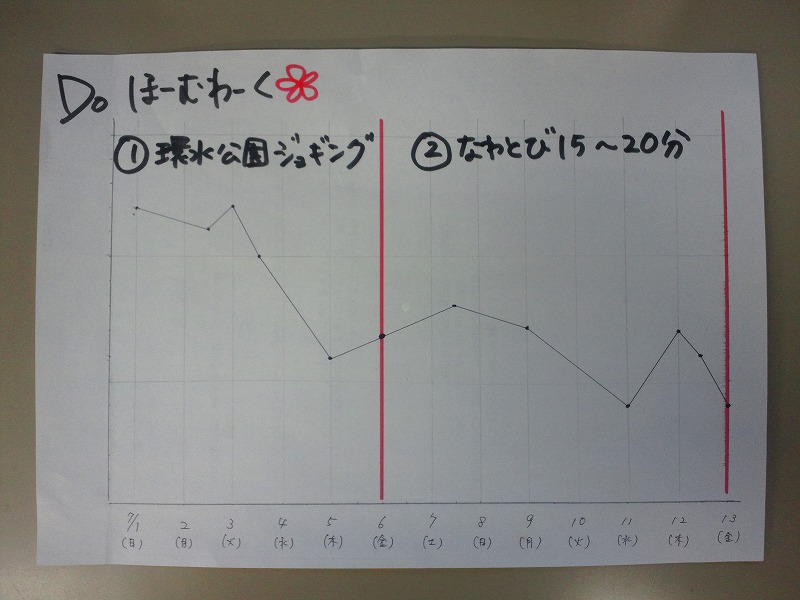 Do ほーむわーく
① 環水公園ジョギング
② なわとび15～20分
7/1 2 3 4 5 6 7 8 9 10 11 12 13
(日) (月) (火) (水) (木) (金) (土) (日) (月) (火) (水) (木) (金)